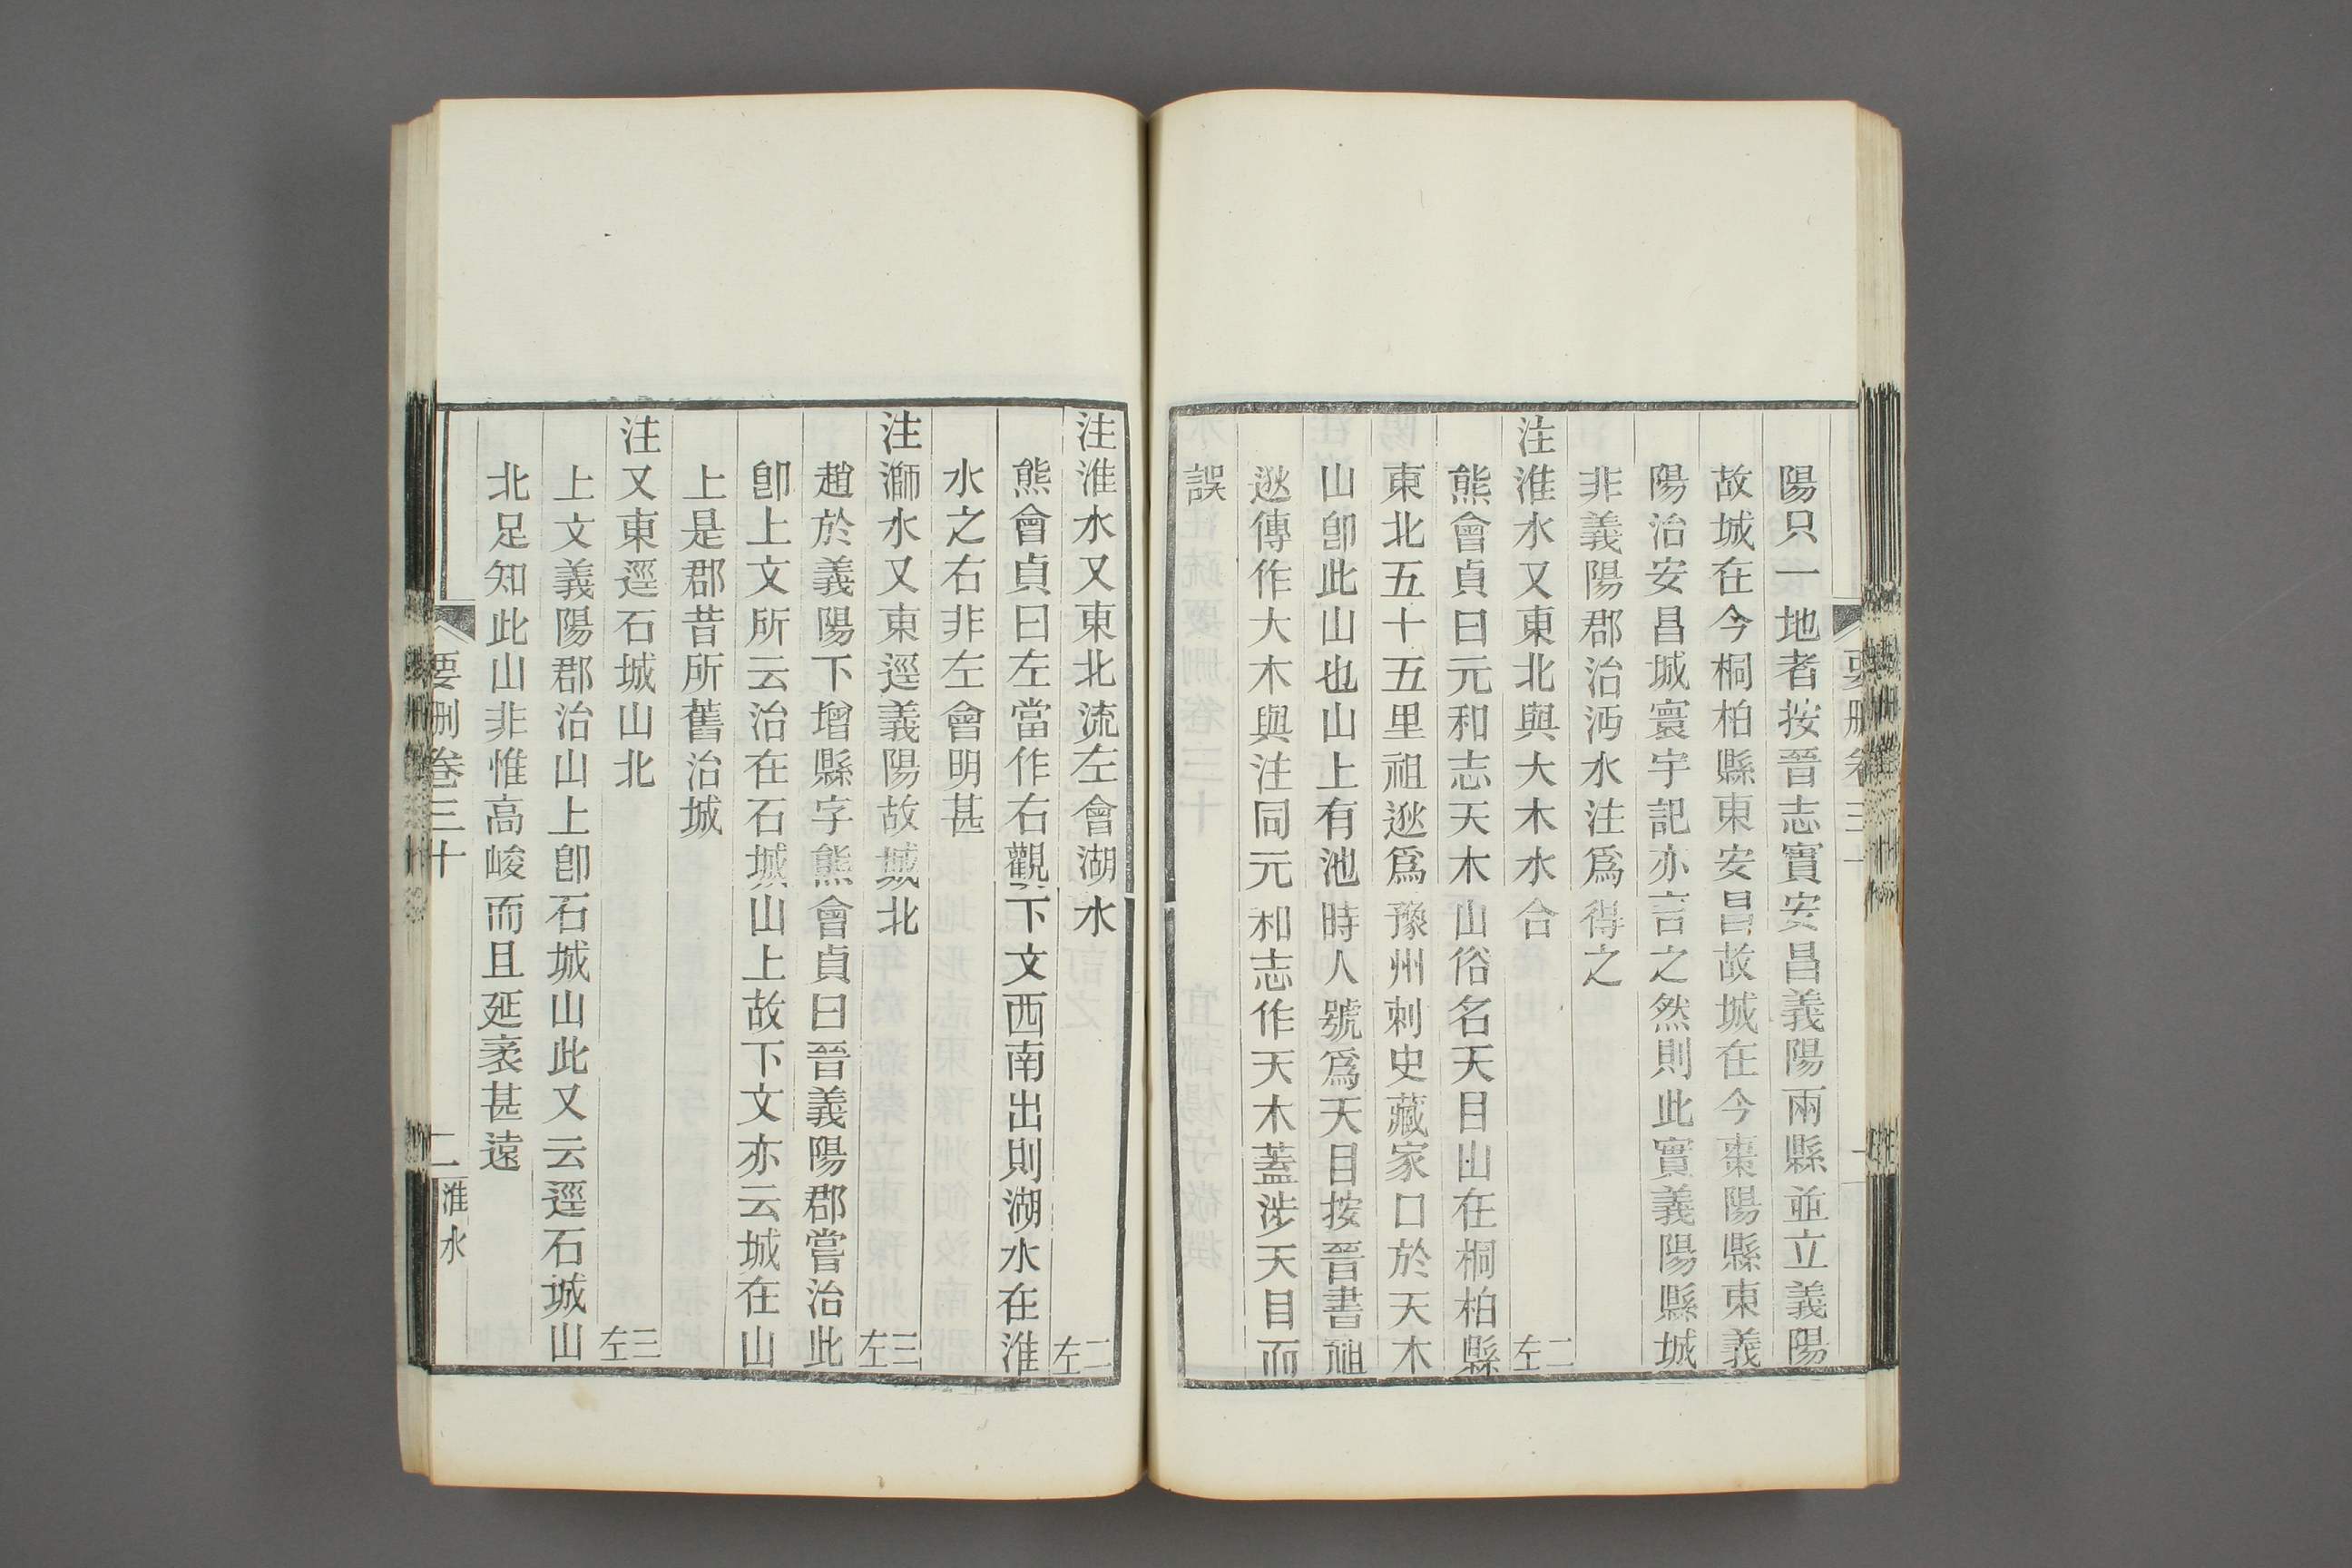 陽只一地者按晉志實安昌義陽兩縣並立義陽
故城在今桐柏縣東安昌故城在今棗陽縣東義
陽治安昌城寰宇記亦言之然則此實義陽縣城
非義陽郡治沔水注爲得之
注淮水又東北與大木水合 二左
熊會貞曰元和志天木山俗名天目山在桐柏縣
東北五十五里祖逖爲豫州刺史藏家口於天木
山卽此山也山上有池時人號爲天目按晉書祖
逖傳作大木與注同元和志作天木蓋涉天目而
誤
注淮水又東北流左會湖水 二左
熊會貞曰左當作右觀下文西南出則湖水在淮
水之右非左會明甚
注溮水又東逕義陽故城北 三左
趙於義陽下增縣字熊會貞曰晉義陽郡嘗治此
卽上文所云治在石城山上故下文亦云城在山
上是郡昔所舊治城
注又東逕石城山北 三左
上文義陽郡治山上卽石城山此又云逕石城山
北足知此山非惟高峻而且延袤甚遠
要刪卷三十 二 淮水